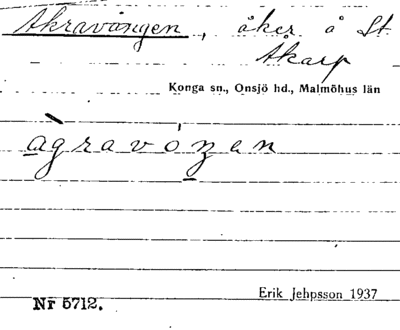 Åkravången, åker å St.
Åkarp
Konga sn., Onsjö hd., Malmöhus län
Erik Jehpsson 1937
Nr 5712.